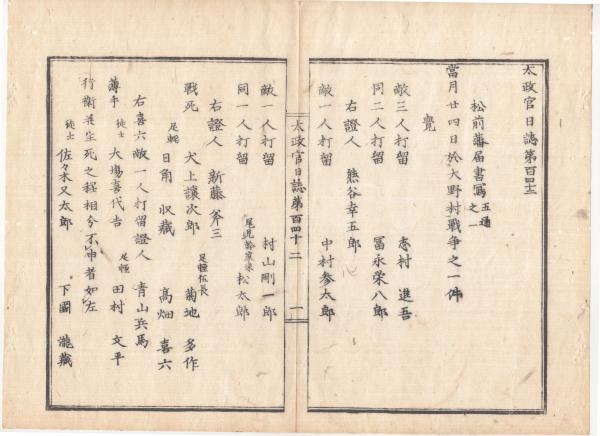 太政官日誌第百四十二
松前藩届書寫 五通之一
當月廿四日於大野村戦争之一件
覺
敵三人打留 木村進吾
同二人打留 冨永栄八郎
右證人 熊谷幸五郎
敵一人打留 中村参太郎
太政官日誌第百四十二 一
敵一人打留 村山剛一郎
同一人打留 尾見 家来 松太郎
右證人 新藤斧三
戦死 犬上譲次郎 足軽伍長 菊地多作
足軽 日角収蔵 高畑喜六
右喜六敵一人打留證人 青山兵馬
薄手 徒士 大場喜代吉 足軽 田村文平
行衛并生死之程相分不申者如左
徒士 佐々木又太郎 下國瀧蔵